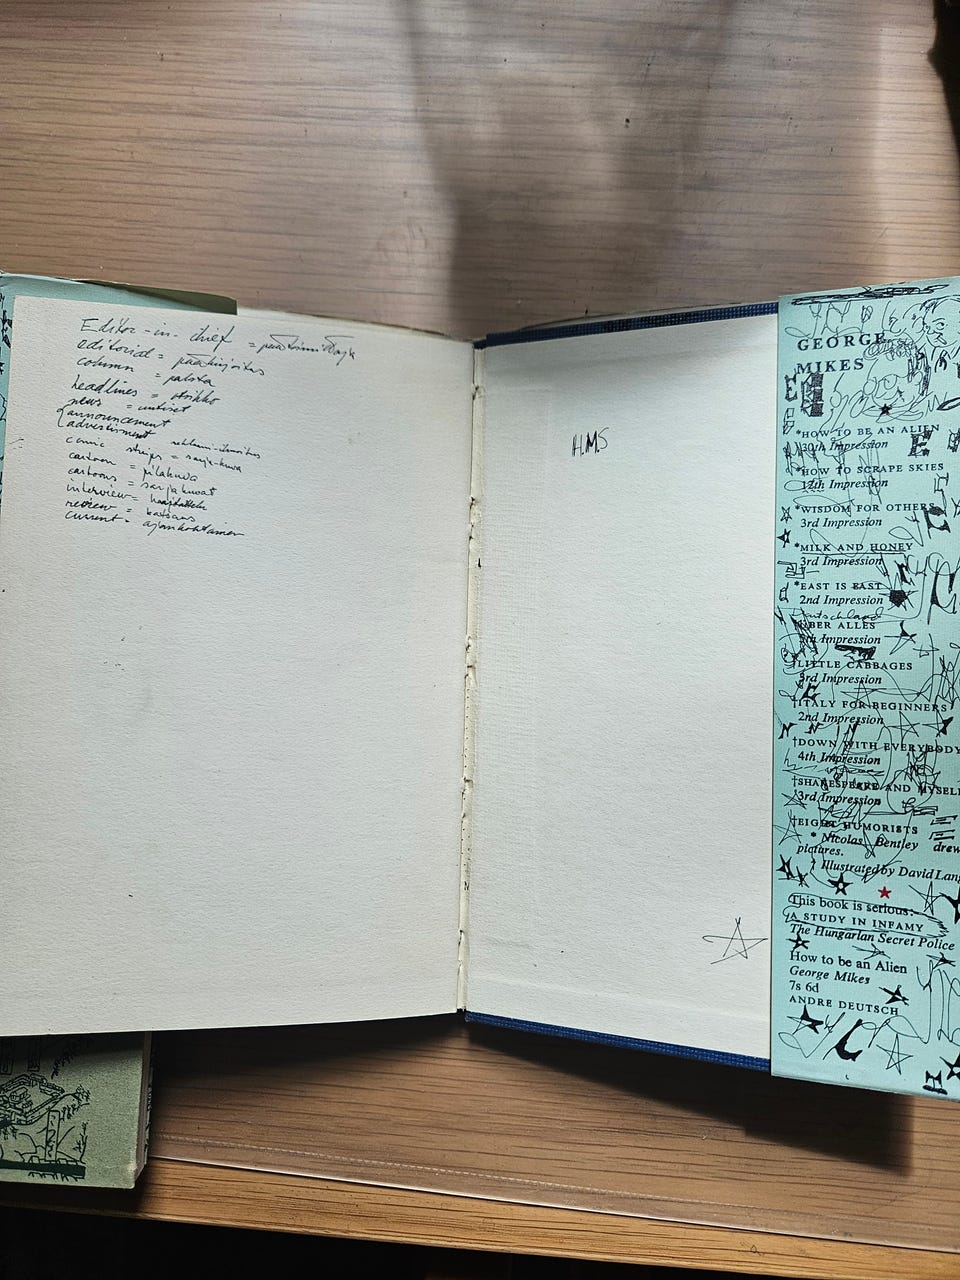 Editor-in-chief = päätoimittaja
editorial = pääkirjoitus
column = palsta
headlines = otsikko
news = uutiset
announcement
advertisment
comic strips = sarjakuva
cartoon = pilakuva
cartoons = sarjakuvat
interview = haastattelu
review = katsaus
current = ajankohtainen
H.M.S
GEORGE
MIKES
*HOW TO BE AN ALIEN
30th Impression
*HOW TO SCRAPE SKIES
12th Impression
*WISDOM FOR OTHERS
3rd Impression
*MILK AND HONEY
3rd Impression
*EAST IS EAST
2nd Impression
Deutschland
ÜBER ALLES
5th Impression
LITTLE CABBAGES
3rd Impression
†ITALY FOR BEGINNERS
2nd Impression
†DOWN WITH EVERYBODY
4th Impression
†SHAKESPEARE AND MYSELF
3rd Impression
†EIGHT HUMORISTS
* Nicolas Bentley drew
pictures.
† Illustrated by David Lang
This book is serious:
A STUDY IN INFAMY
The Hungarian Secret Police
How to be an Alien
George Mikes
7s 6d
ANDRE DEUTSCH